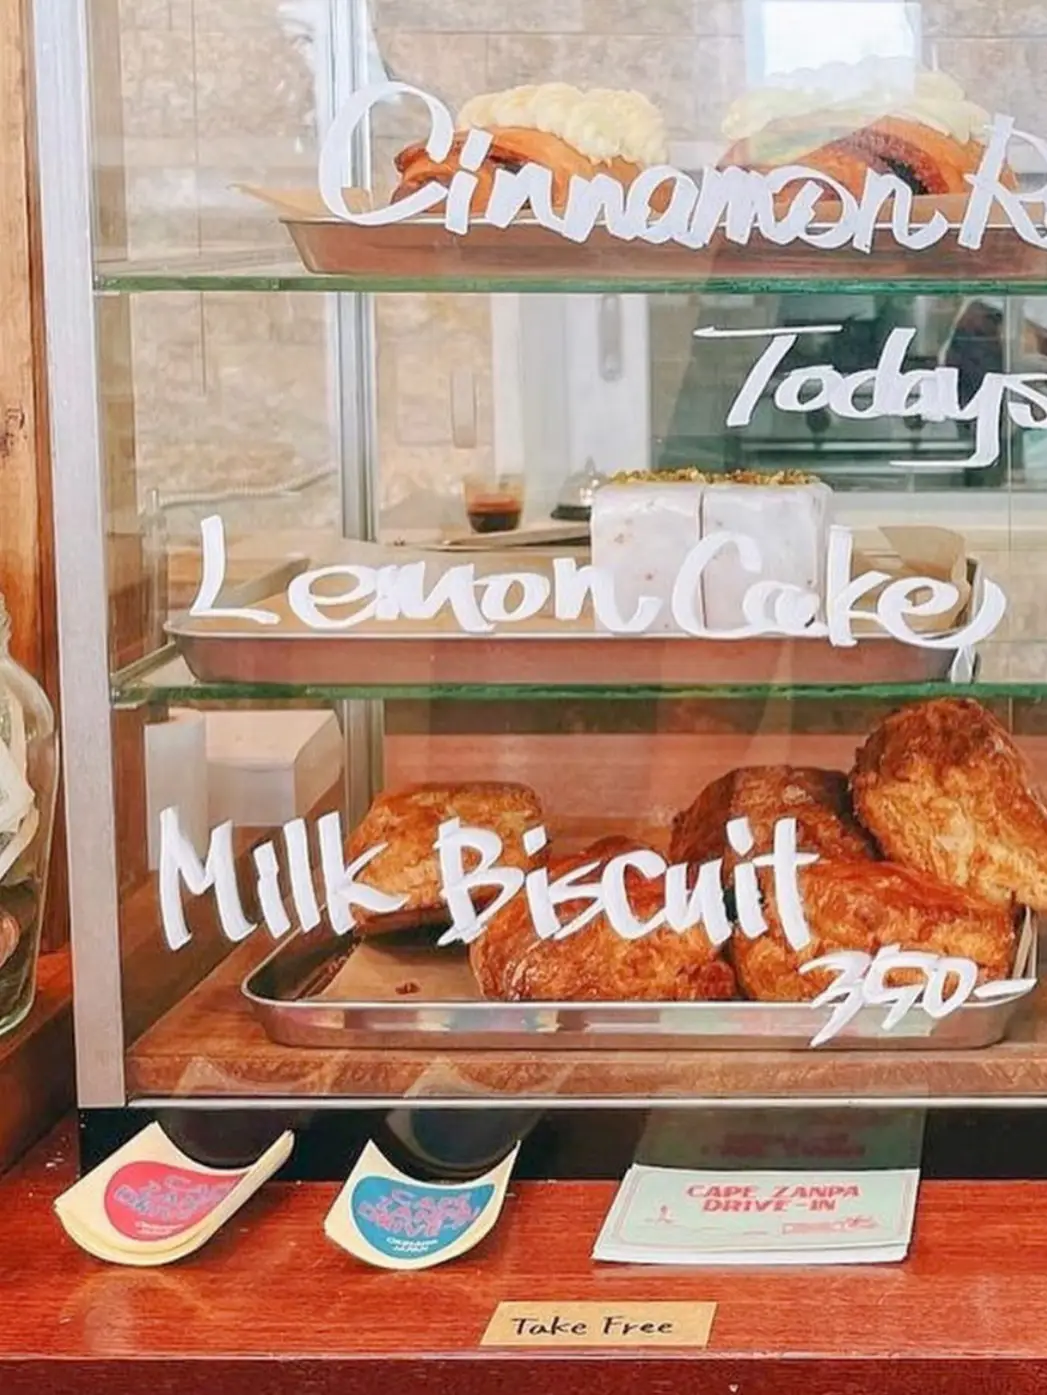 Cinnamon R
Todays
Lemon Cake
Milk Biscuit
350-
CAPE ZANPA
DRIVE-IN
CAPE
ZANPA
DRIVE-IN
OKINAWA
JAPAN
CAPE ZANPA
DRIVE-IN
Take Free